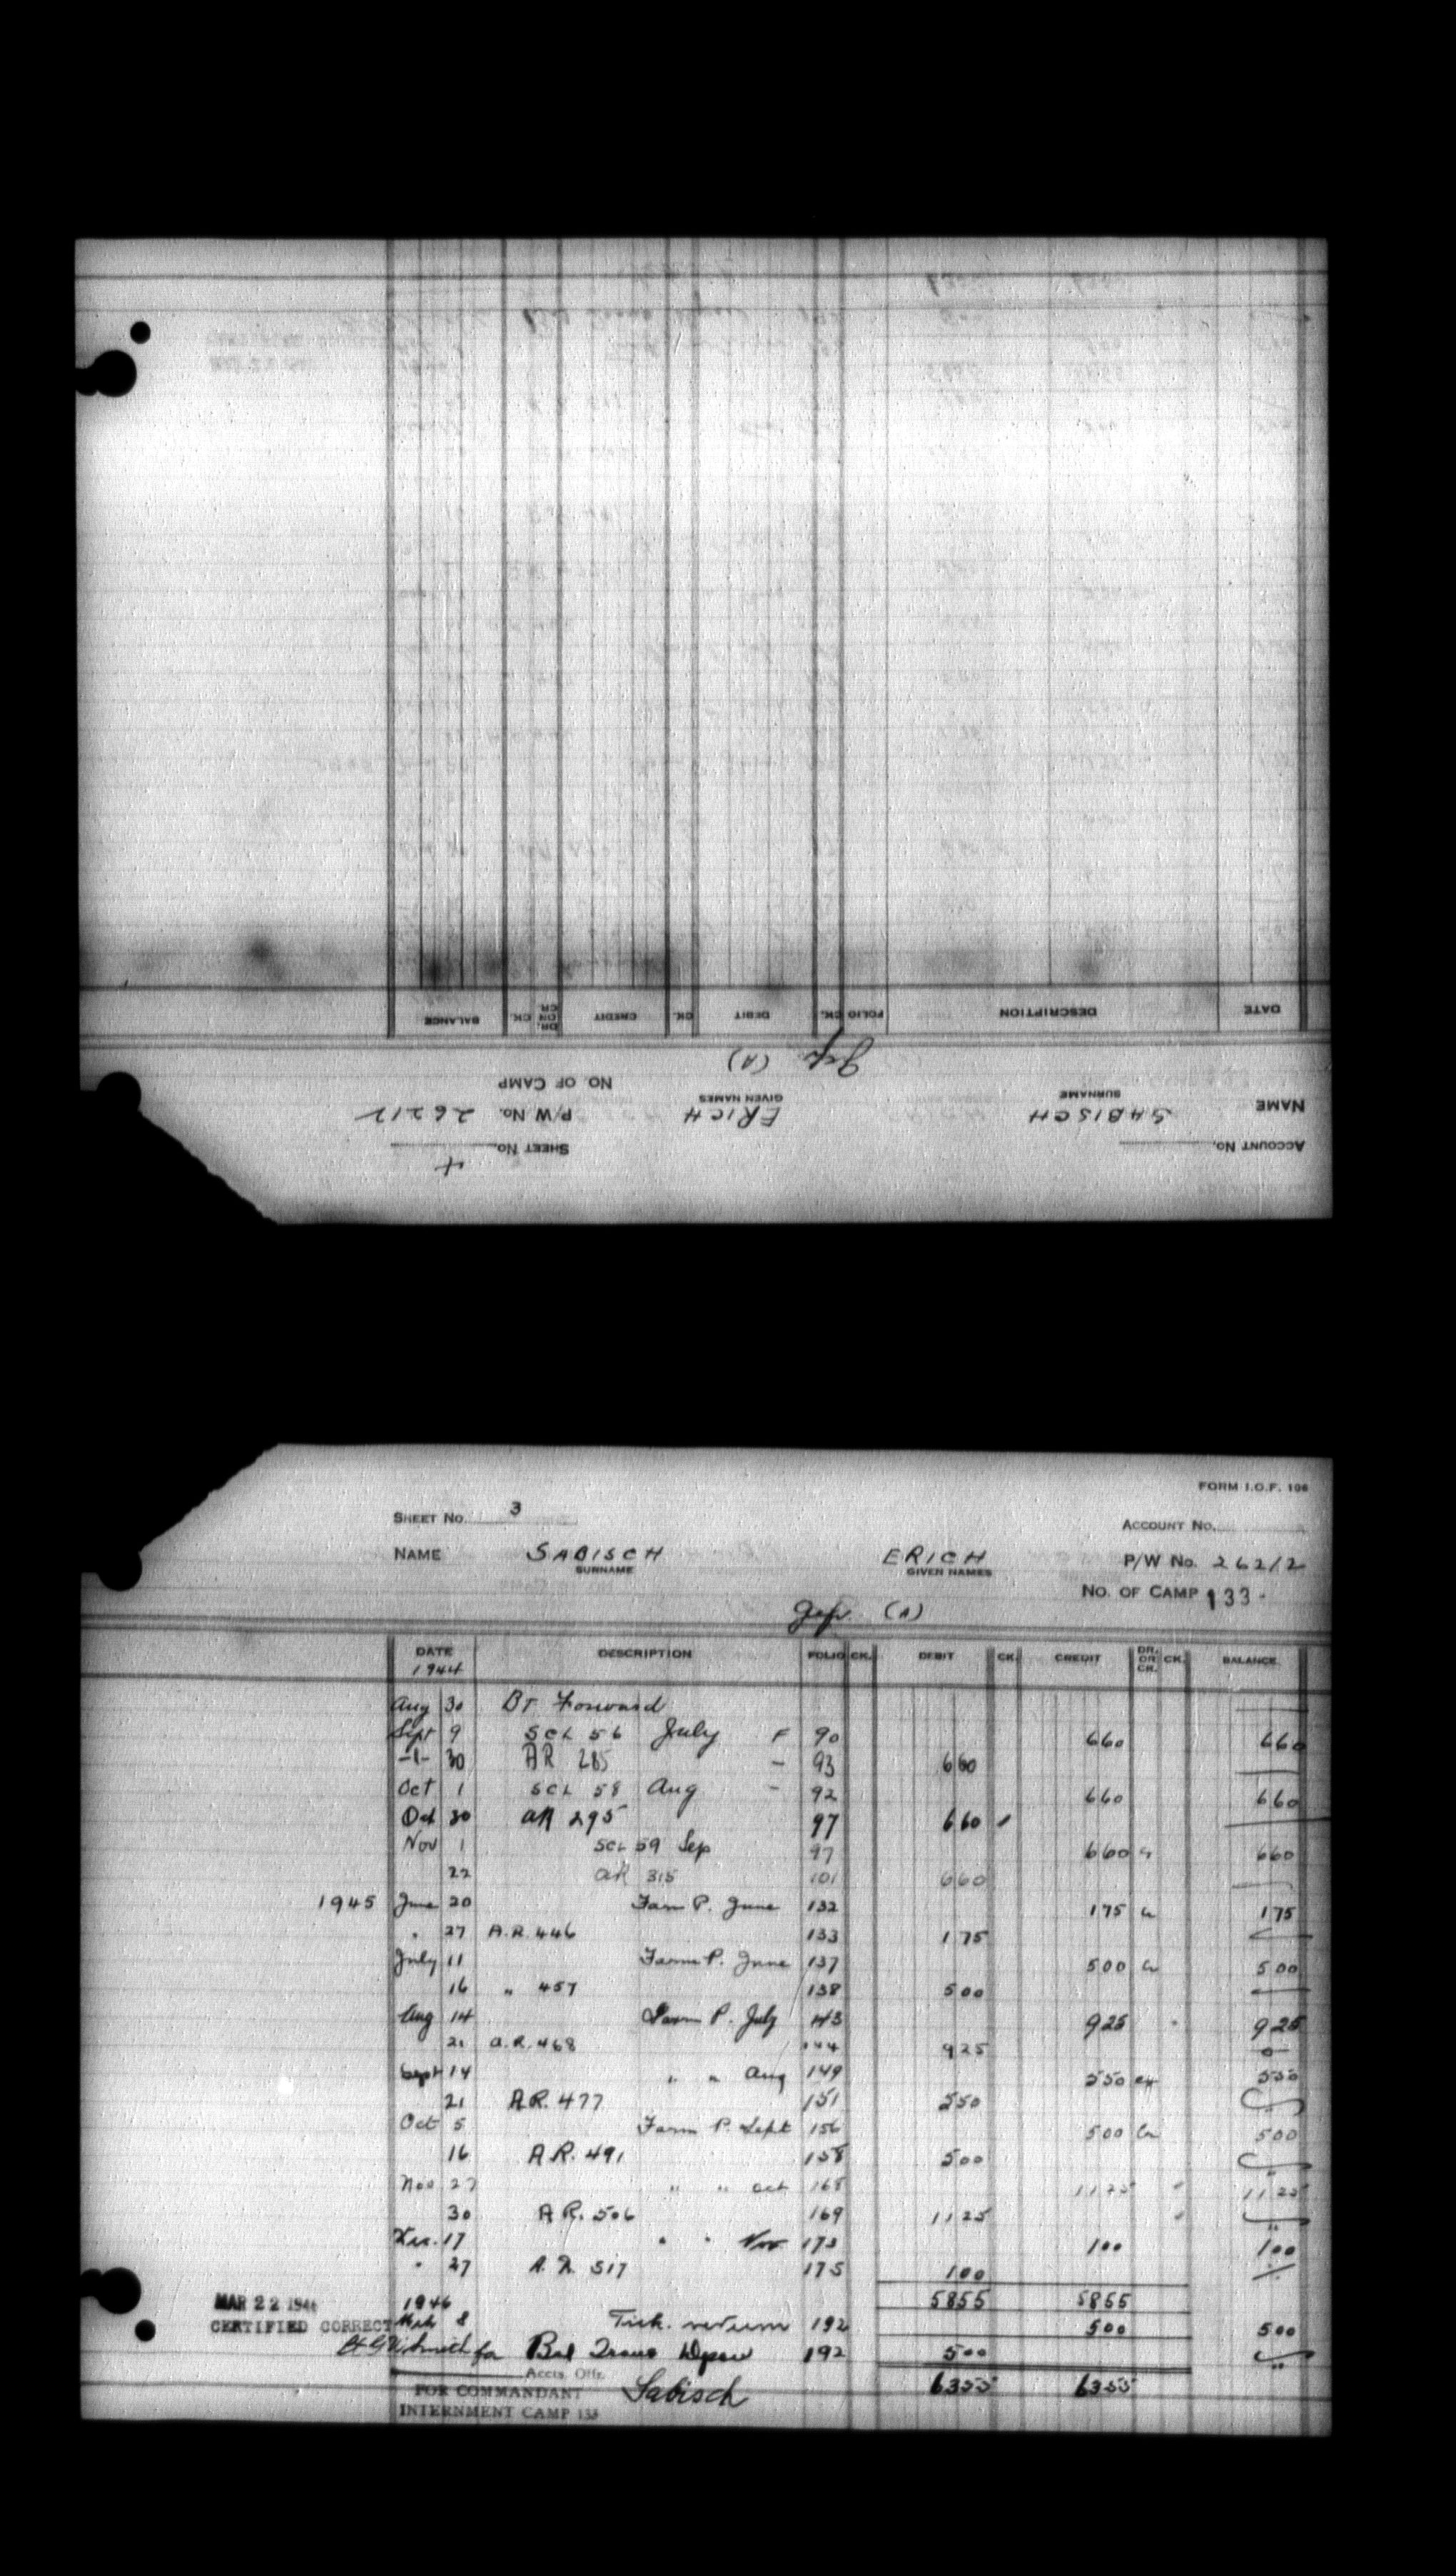 ACCOUNT No.
SHEET No. 4
NAME SABISCH ERICH P/W No. 26212
SURNAME GIVEN NAMES
NO. OF CAMP
Gefr. (A)
DATE DESCRIPTION FOLIO CK. DEBIT CK. CREDIT DR. OR CR. CK. BALANCE
FORM I.O.F. 106
SHEET No. 3
ACCOUNT No.
NAME SABISCH ERICH P/W No. 26212
SURNAME GIVEN NAMES
NO. OF CAMP 133-
Gefr. (A)
DATE DESCRIPTION FOLIO CK. DEBIT CK. CREDIT DR. OR CR. CK. BALANCE
1944
Aug 30 Bt Forward
Sept 9 SCL 56 July F 90 660 660
-"- 30 AR 285 - 93 660
Oct 1 SCL 58 Aug - 92 660 660
Oct 30 AR 295 97 660
Nov 1 SCL 59 Sep 97 660 660
22 AR 315 101 660
1945 June 20 Farm P. June 132 175 Cr 175
" 27 A.R. 446 133 175
July 11 Farm P. June 137 500 Cr 500
16 " 457 138 500
Aug 14 Farm P. July 143 925 925
21 A.R. 468 144 925
Sept 14 " " Aug 149 550 Cr 550
21 A.R. 477 151 550
Oct 5 Farm P. Sept 156 500 Cr 500
16 A.R. 491 158 500
Nov 27 " " Oct 168 1125 1125
30 A.R. 506 169 1125
Dec. 17 " " Nov 173 100 100
" 27 A.R. 517 175 100
5855 5855
1946
MAR 22 1946
CERTIFIED CORRECT
Mch 8 192 500 500
for Bal Trans 192 500
Accts. Offr.
6355 6355
FOR COMMANDANT
INTERNMENT CAMP 133
Sabisch